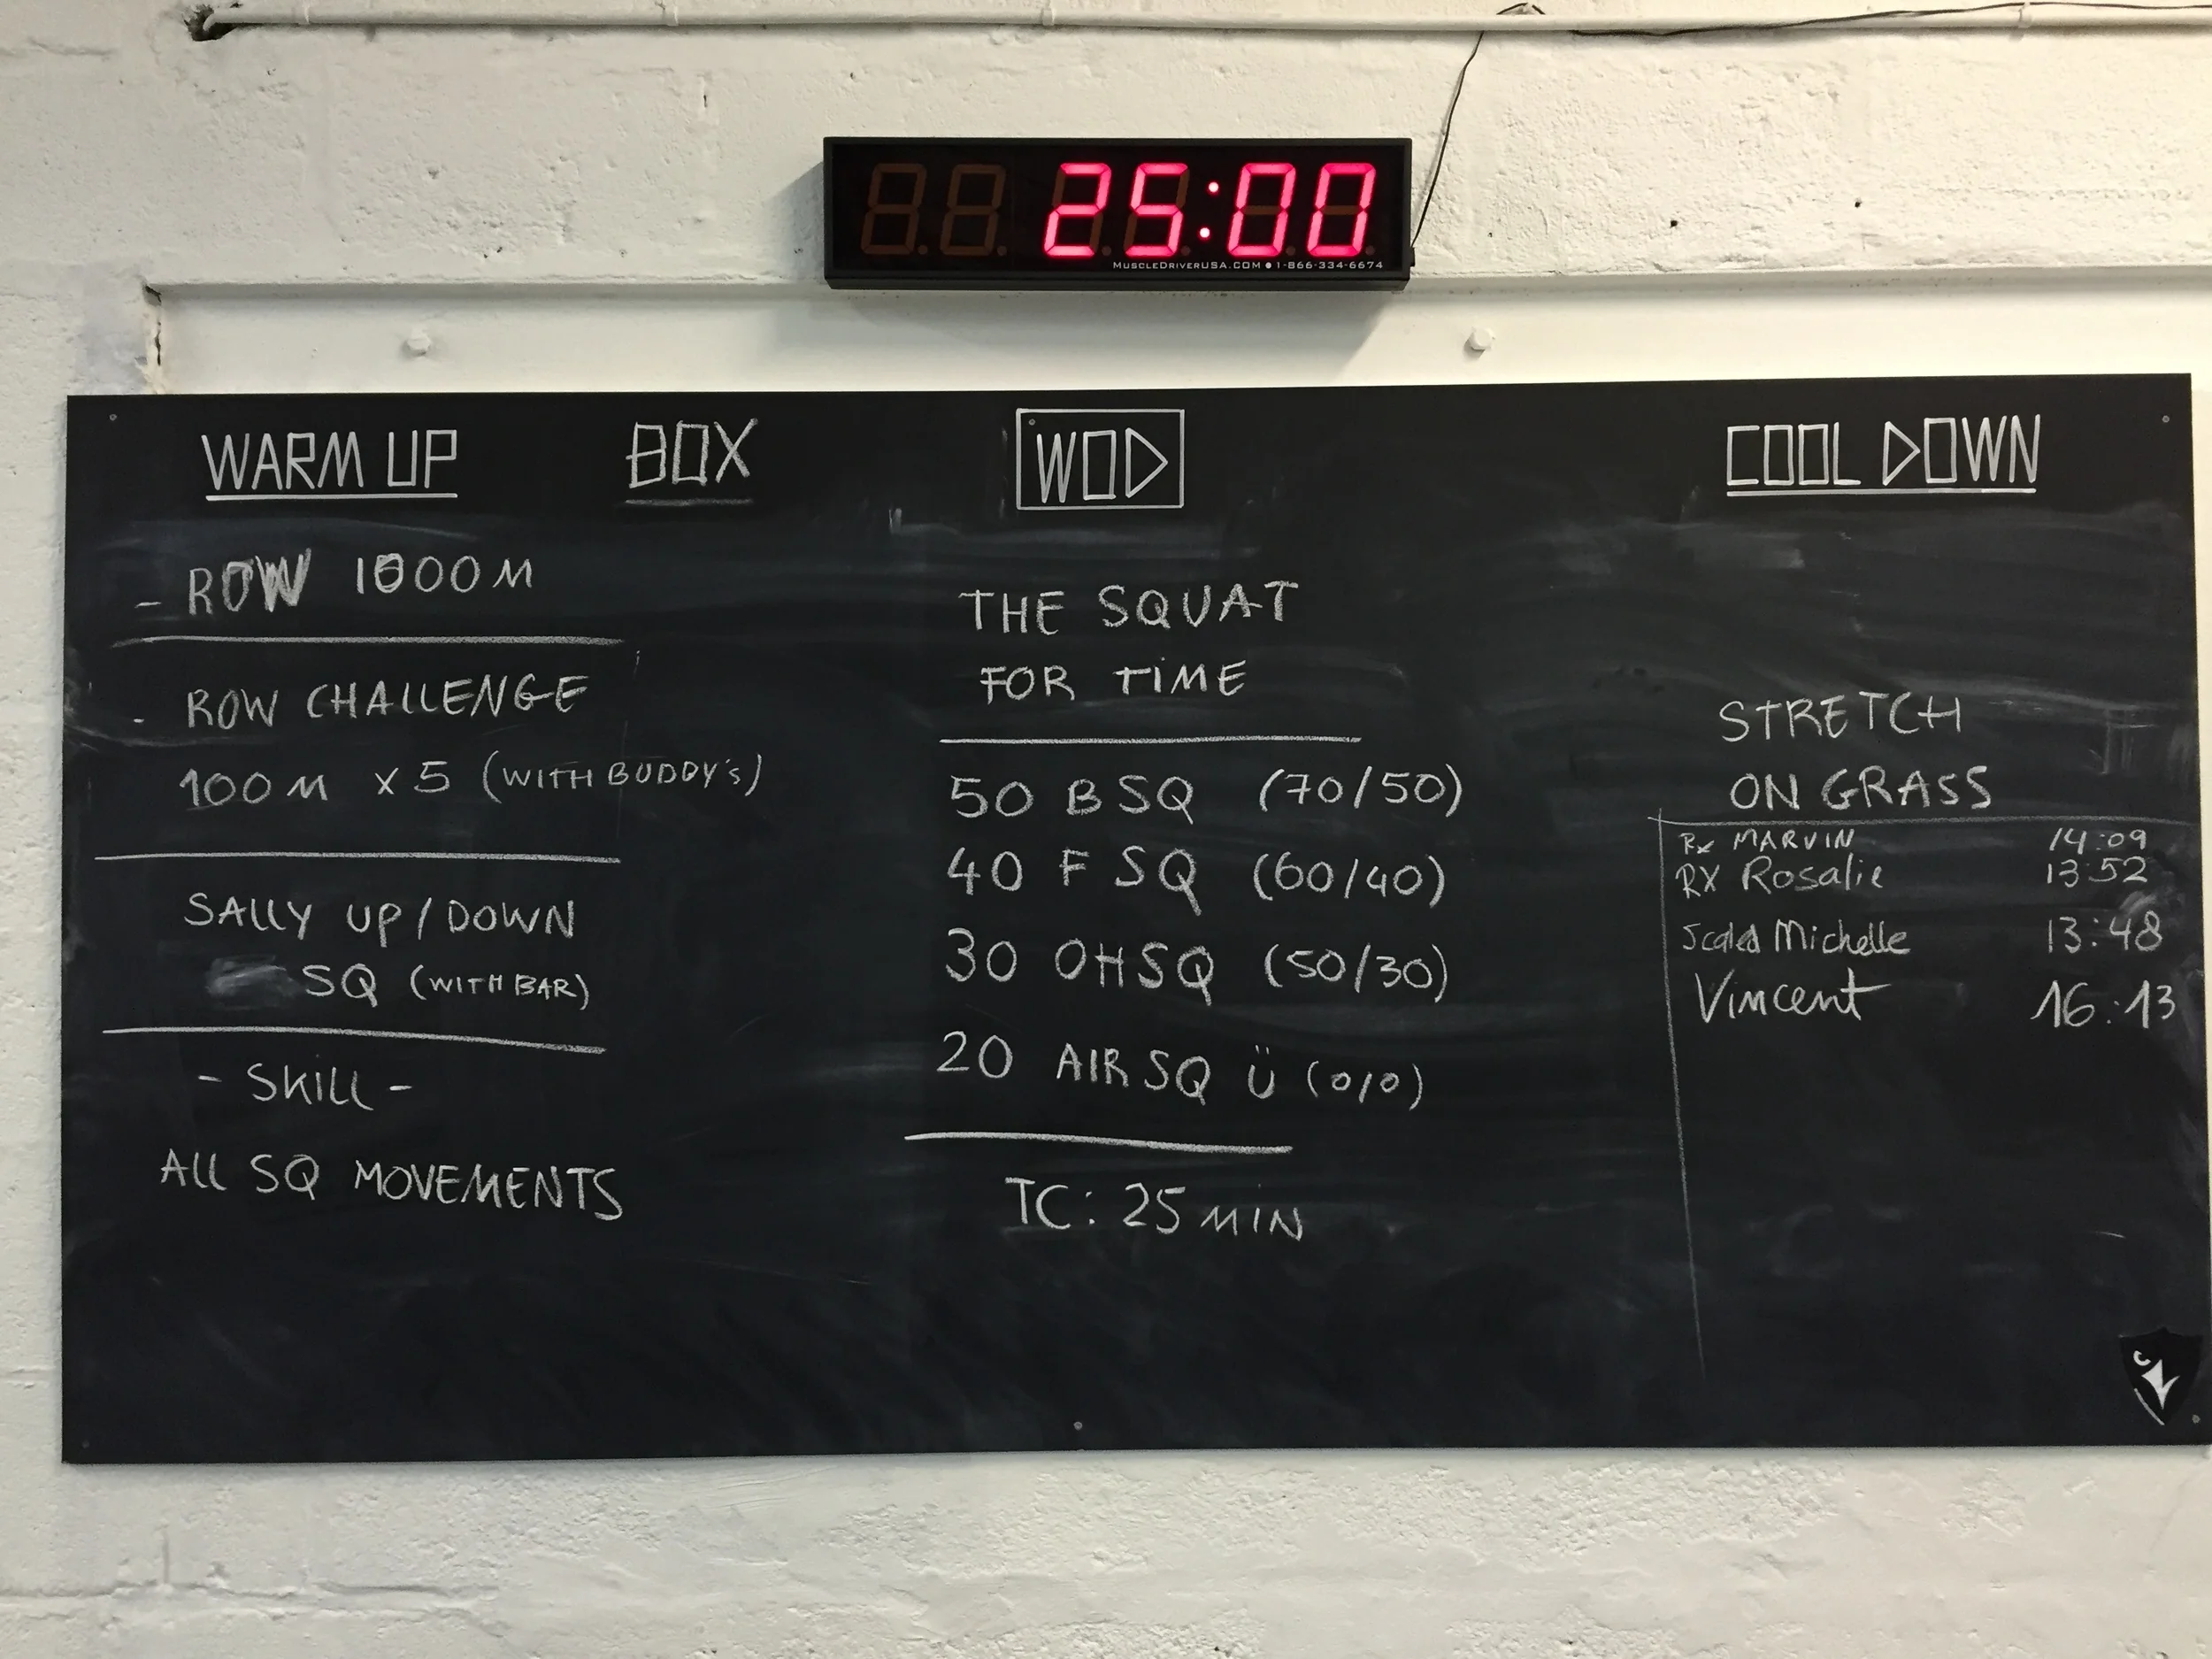 25:00
MUSCLEDRIVERUSA.COM ● 1-866-334-6674
WARM UP
- ROW 1000 M
- ROW CHALLENGE
100 M x 5 (WITH BUDDY's)
SALLY UP / DOWN
SQ (WITH BAR)
- SKILL -
ALL SQ MOVEMENTS
BOX
WOD
THE SQUAT
FOR TIME
50 B SQ (70/50)
40 F SQ (60/40)
30 OHSQ (50/30)
20 AIR SQ Ü (0/0)
TC: 25 MIN
COOL DOWN
STRETCH
ON GRASS
Rx MARVIN 14:09
RX Rosalie 13:52
Scaled Michelle 13:48
Vincent 16:13